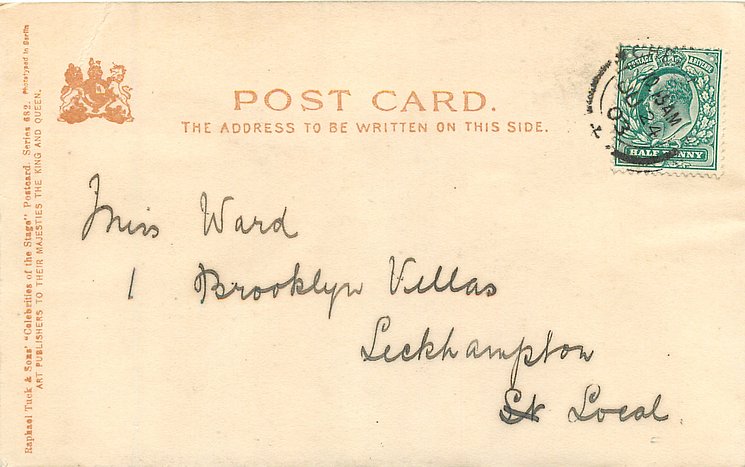 POST CARD.
THE ADDRESS TO BE WRITTEN ON THIS SIDE.
Raphael Tuck & Sons' "Celebrities of the Stage" Postcard. Series 682. Photatyped in Berlin
ART PUBLISHERS TO THEIR MAJESTIES THE KING AND QUEEN.
POSTAGE REVENUE
HALF PENNY
AM
24
03
Miss Ward
1 Brooklyn Villas
Leckhampton
Local.